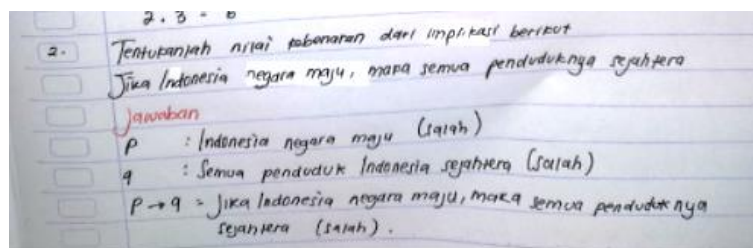 2. 3 = 6
2. Tentukanlah nilai kebenaran dari implikasi berikut
Jika Indonesia negara maju, maka semua penduduknya sejahtera
Jawaban
p : Indonesia negara maju (salah)
q : Semua penduduk Indonesia sejahtera (salah)
p → q = Jika Indonesia negara maju, maka semua penduduknya
sejahtera (salah).